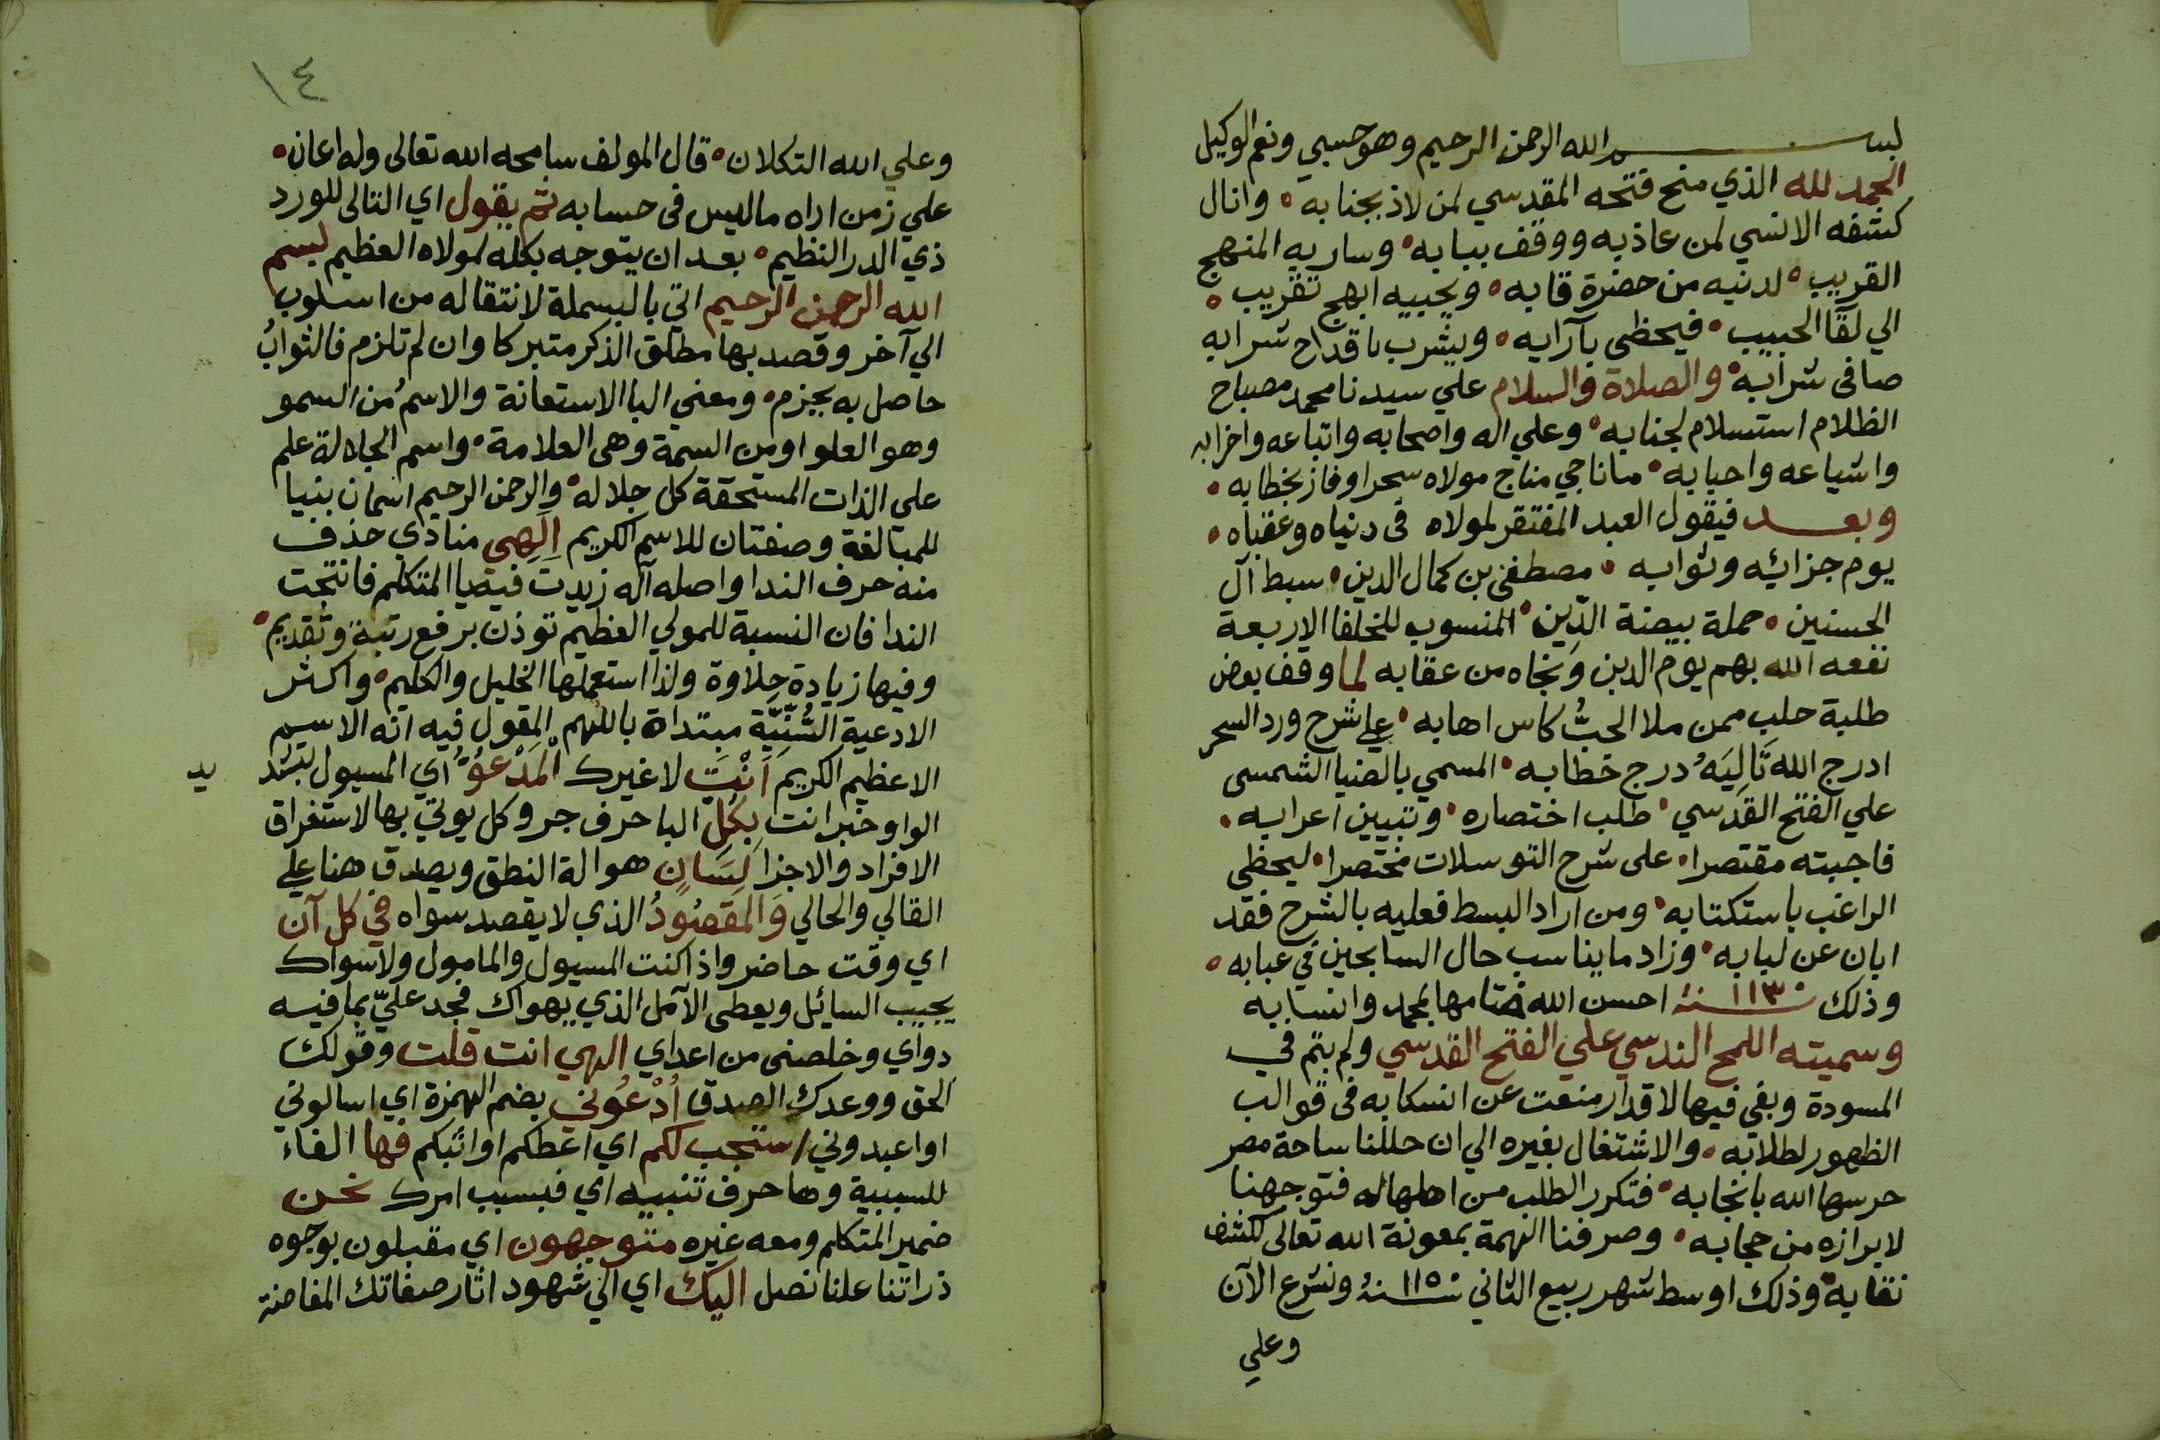 بسم الله الرحمن الرحيم وهو حسبي ونعم الوكيل
الحمد لله الذي منح فتحه المقدسي لمن لاذ بجنابه ٠ وانال
كشفه الانسي لمن عاذ به ووقف ببابه ٠ وسار به المنهج
القريب ٠ لدنيه من حضرة قابه ٠ ويجيبه ابهج تقريب ٠
الي لقا الحبيب ٠ فيحظى بآرابه ٠ ويشرب باقداح شرابه
صافى شرابه ٠ والصلاة والسلام علي سيدنا محمد مصباح
الظلام استسلام لجنابه ٠ وعلي اله واصحابه واتباعه واحزابه
واشياعه واحبابه ٠ ما ناجي مناج مولاه سحرا وفاز بخطابه ٠
وبعد فيقول العبد المفتقر لمولاه فى دنياه وعقباه ٠
يوم جزائه وثوابه ٠ مصطفى بن كمال الدين ٠ سبط آل
الحسنين ٠ حملة بيضة الدين ٠ المنسوب للخلفا الاربعة
نفعه الله بهم يوم الدين ونجاه من عقابه لما وقف بعض
طلبة حلب ممن ملا الحبُّ كاس اهابه ٠ علي شرح ورد السحر
ادرج الله تَالِيَهُ درج خطابه ٠ المسمي بالضيا الشمسى
علي الفتح القدسي ٠ طلب اختصاره ٠ وتبيين اعرابه ٠
فاجبته مقتصرا ٠ على شرح التوسلات مختصرا ٠ ليحظى
الراغب باستكتابه ٠ ومن اراد البسط فعليه بالشرح فقد
ابان عن لبابه ٠ وزاد ما يناسب حال السابحين في عبابه ٠
وذلك سنة ١١٣٠ احسن الله ختامها بمحمد وانسابه
وسميته اللمح الندسي علي الفتح القدسي ولم يتم في
المسودة وبقى فيها لاقدار منعت عن انسكابه فى قوالب
الظهور لطلابه ٠ والاشتغال بغيره الي ان حللنا ساحة مصر
حرسها الله بانجابه ٠ فتكرر الطلب من اهلها له فتوجهنا
لابرازه من حجابه ٠ وصرفنا الهمة بمعونة الله تعالى لكشف
نقابه ٠ وذلك اوسط شهر ربيع الثاني سنة ١١٥٠ ونشرع الآن
وعلي
١٤
وعلي الله التكلان ٠ قال المولف سامحه الله تعالى وله اعان ٠
علي زمن اراه ما ليس فى حسابه ثم يقول اي التالى للورد
ذي الدر النظيم ٠ بعد ان يتوجه بكله لمولاه العظيم بسم
الله الرحمن الرحيم اتي بالبسملة لانتقاله من اسلوب
الي آخر وقصد بها مطلق الذكر متبركا وان لم تلزم فالثوابُ
حاصل به بجزم ٠ ومعني البا الاستعانة والاسمُ من السمو
وهو العلو او من السمة وهى العلامة ٠ واسم الجلالة علم
علي الذات المستحقة كل جلاله ٠ والرحمن الرحيم اسمان بنيا
للمبالغة وصفتان للاسم الكريم الَهِي منادي حذف
منه حرف الندا واصله آله زيدت فيه يا المتكلم فانتجت
الندا فان النسبة للمولي العظيم توذن برفع رتبة وتقديم ٠
وفيها زيادة حلاوة ولذا استعملها الخليل والكليم ٠ واكثر
الادعية السُّنِّيَّة مبتداة باللهم المقول فيه انه الاسم
الاعظيم الكريم اَنْتَ لا غيرك الْمَدْعُوُّ اي المسيول بتشد
يد
الواو خبر انت بِكُلِ البا حرف جر وكل يوتي بها لاستغراق
الافراد والاجزا لِسَانٍ هو الة النطق ويصدق هنا علي
القالي والحالي وَالمقصُودُ الذي لا يقصد سواه في كل آن
اي وقت حاضر واذا كنت المسيول والمامول ولا سواك
يجيب السايل ويعطى الآمل الذي يهواك فجد عليّ بما فيه
دواي وخلصنى من اعداي الهي انت قلت وقولك
الحق ووعدك الصدق اُدْعُوني بضم الهمزة اي اسالوني
او اعبدوني استجب لكم اي اعطكم او اثبكم فها الفاء
للسببية وها حرف تنبيه اي فبسبب امرك نحن
ضمير المتكلم ومعه غيره متوجهون اي مقبلون بوجوه
ذراتنا علنا نصل اليك اي الي شهود اثار صفاتك المفاضة